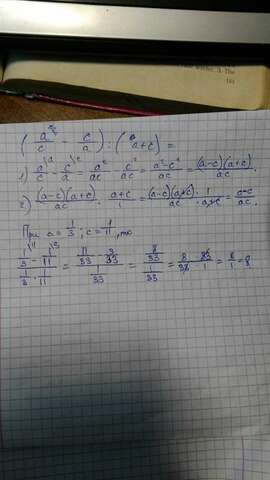 (a/c - c/a) : (a+c) =
1) a/c - c/a = a²/ac - c²/ac = a²-c²/ac = (a-c)(a+c)/ac.
2) (a-c)(a+c)/ac : a+c/1 = (a-c)(a+c)/ac · 1/a+c = a-c/ac.
При a = 1/3; c = 1/11, то
1/3 \11 - 1/11 \3 / 1/3 · 1/11 = 11/33 - 3/33 / 1/33 = 8/33 / 1/33 = 8/33 · 33/1 = 8/1 = 8